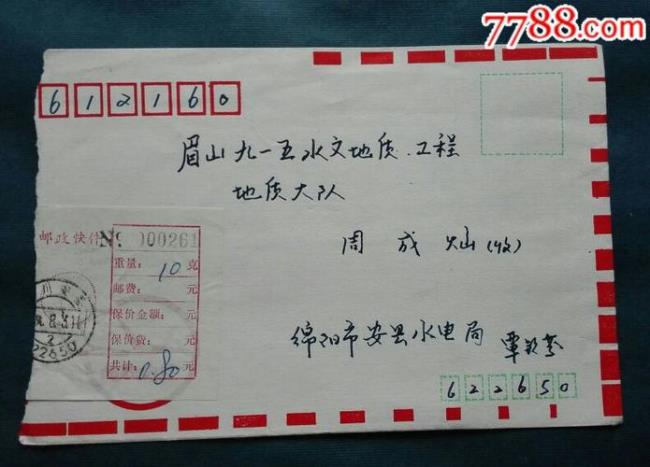 7788.com
612160
眉山九一五水文地质.工程
地质大队
周成灿(收)
邮政快件
No. 000261
重量: 10 克
邮费: 元
保价金额: 元
保价费: 元
共计: 0.80 元
川
8.31
2
22650
绵阳市安县水电局
622650